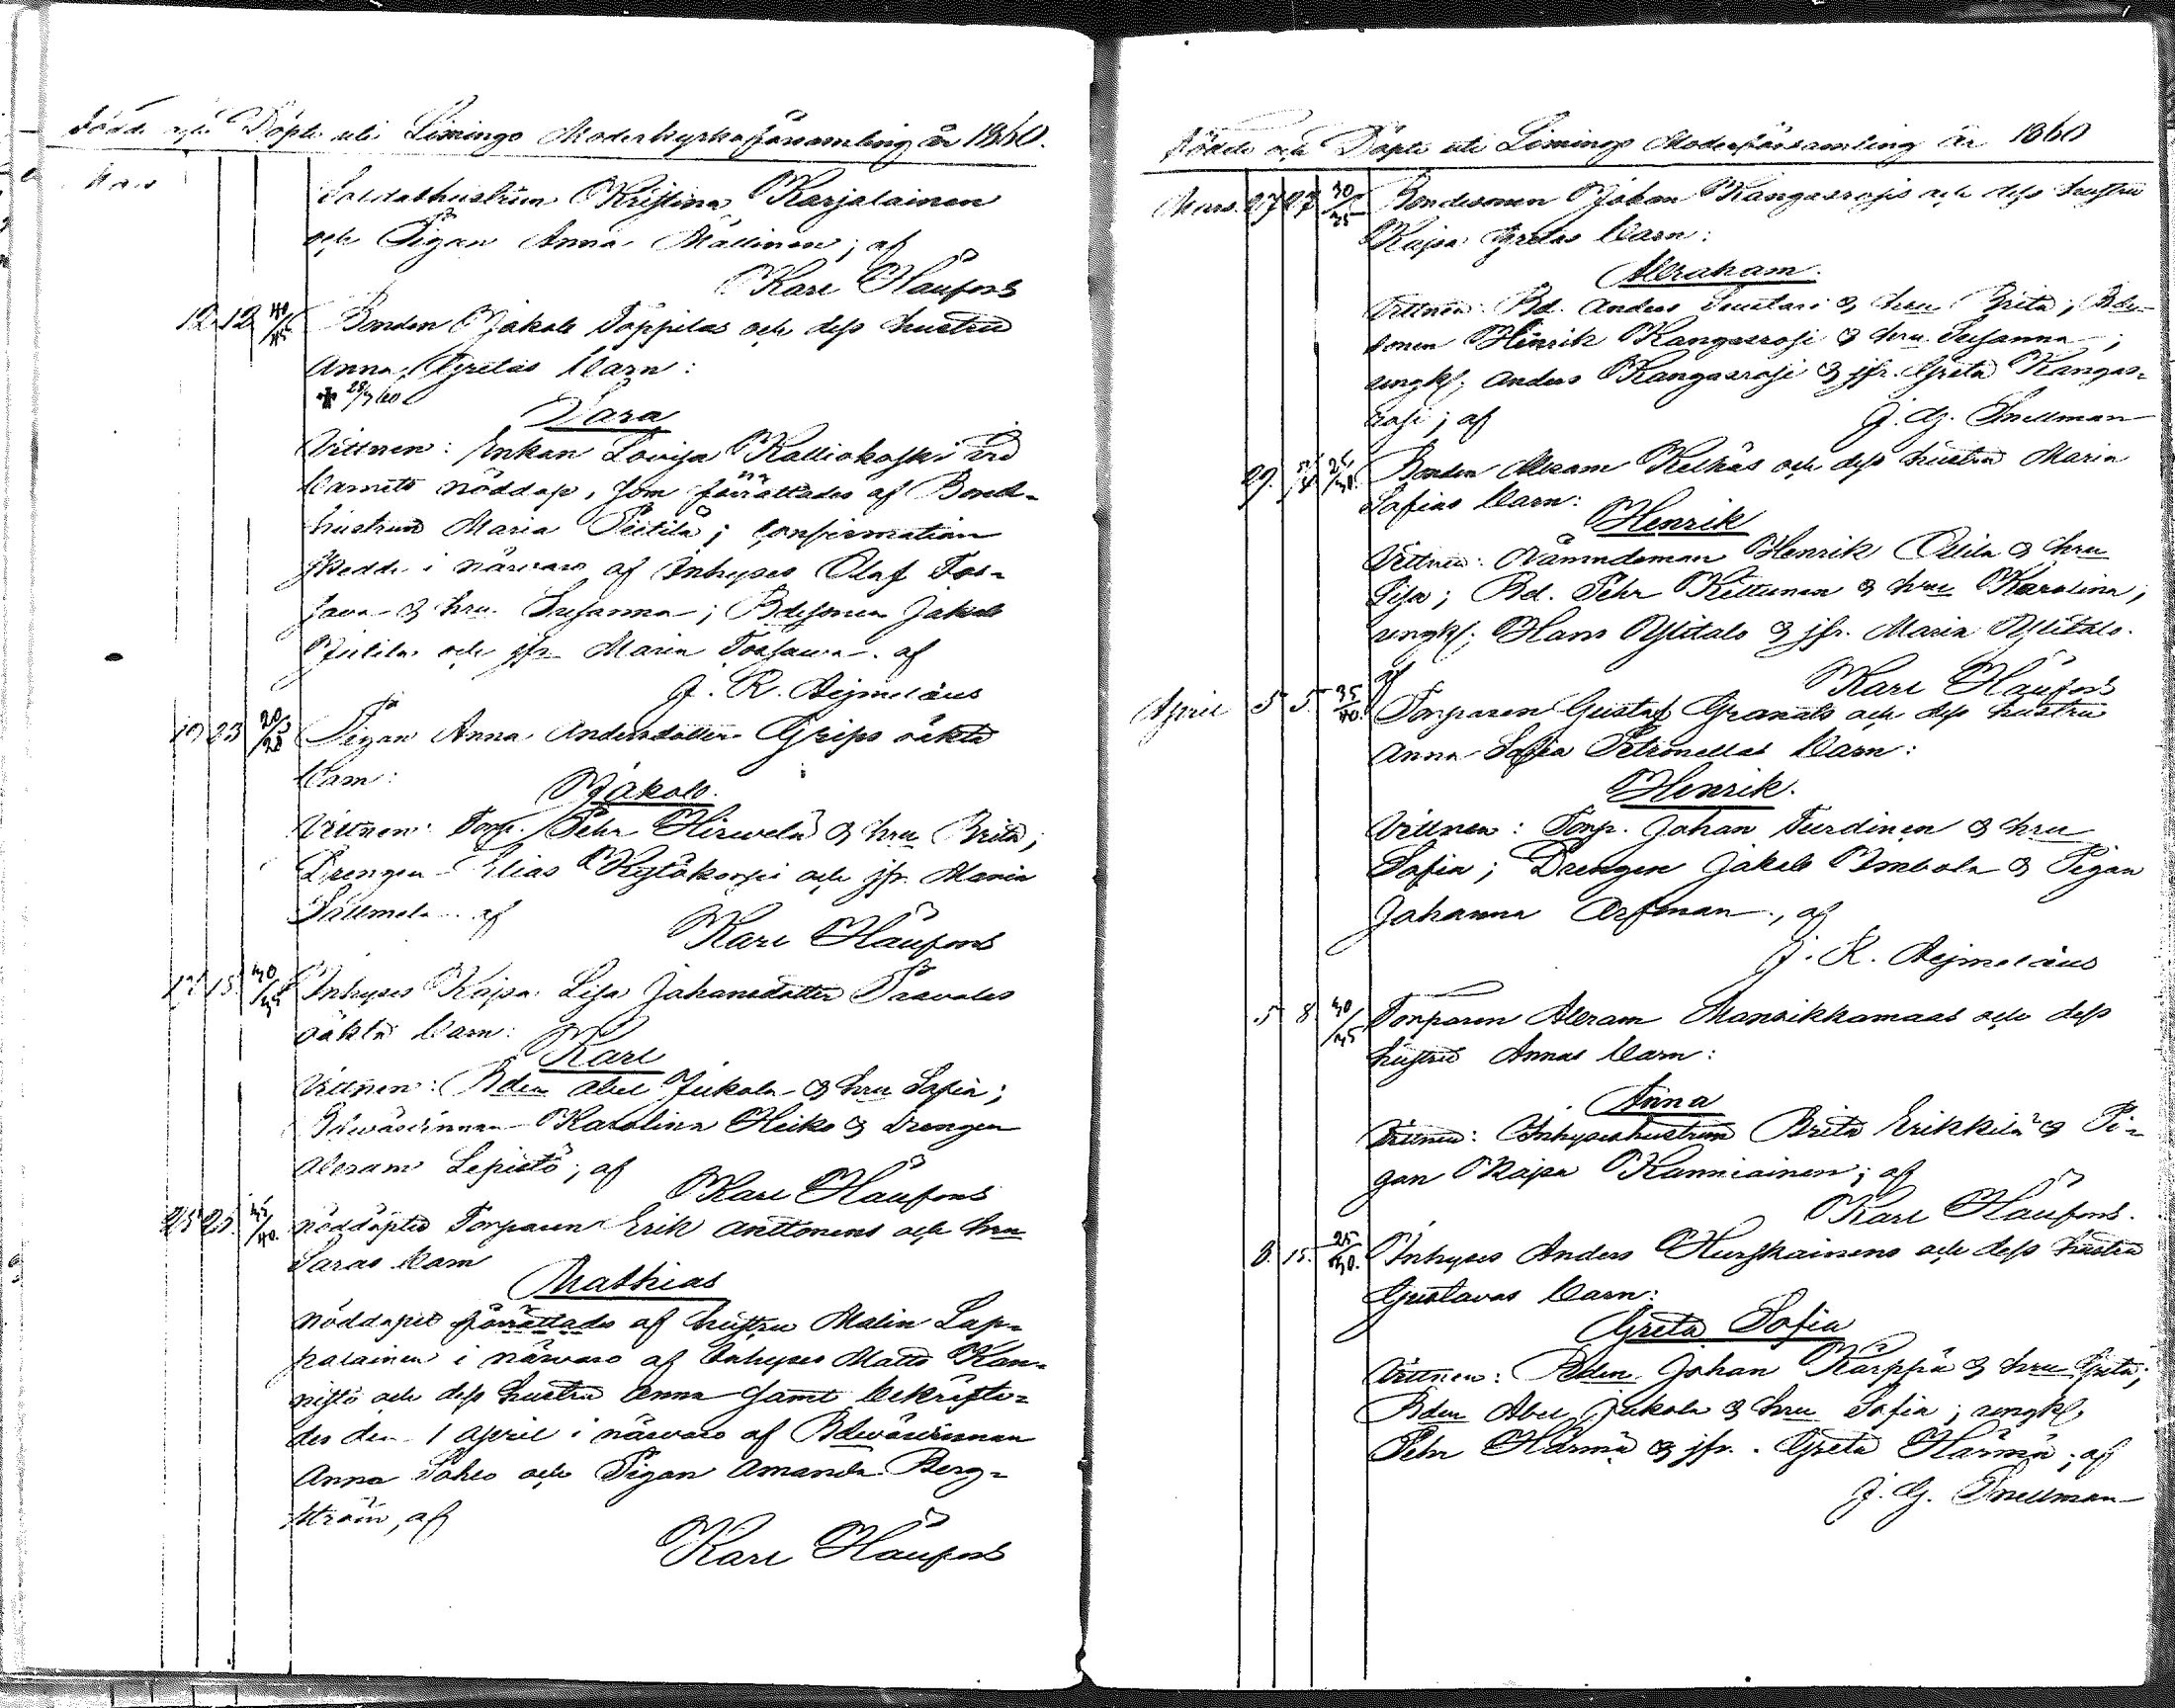 Födde och Döpte uti Limingo Moderkyrkoförsamling år 1860.
Mars
Soldathustrun Kristina Karjalainen
och Pigan Anna Mällinen; af
Karl Häufors
12 12 40/45 Bonden Jakob Töppilas och dess hustru
Anna Gretas barn:
Sara
Vittnen: Enkan Lovisa Kalliokoski vid
barnets nöddop, som förrättades af Bond-
hustrun Maria Pietilä; confirmation
skedde i närvaro af Inhyses Olaf Tor-
sava & hru Susanna; Bdesonen Jakob
och jfr Maria Torsava. af
J. R. Aejmeläus
19 23 20/25 Pigan Anna Andersdotter Grips oäkta
barn:
Jakob.
Vittnen: Torp. Pehr Hirvelä & hru Brita;
Drengen Elias Kylökorpi och jfr. Maria
af
Karl Häufors
15 40/45 Inhyses Kajsa Lisa Johansdotter Paavolas
oäkta barn:
Karl
Vittnen: Bden Abel Jukola & hru Sofia;
Bdevärdinnan Karolina Heiko & Drengen
Abram Lepistö; af
Karl Häufors
25 25 35/40. nöddöpte Torparen Erik Anttonens och hru
Saras barn
Mathias
nöddopet förrättades af hustru Malin Lap-
palainen i närvaro af Inhyses Matts Kan-
nisto och dess hustru Anna samt bekräfta-
des den 1 April i närvaro af Bdevärdinnan
Anna och Pigan Amanda Berg-
ström, af
Karl Häufors
Födde och Döpte uti Limingo Moderförsamling år 1860
Mars. 27 27 30/35 Bondesonen Johan Kangasrojis och dess hustru
Kajsa Gretas barn:
Abraham.
Vittnen: Bd. Anders & hru Brita; Bde-
sonen Henrik Kangasroji & hru Susanna;
ungk. Anders Kangasroji & jfr. Greta Kangas-
roji; af J. G. Snellman
29. Bonden Abram Kelhäs och dess hustru Maria
Sofias barn:
Henrik
Vittnen: Nämndeman Henrik Ollila & hru
Lisa; Bd. Pehr Kettunen & hru Karolina;
ungk. Hans Ylitalo & jfr. Maria Ylitalo.
af Karl Häufors
April 5 5. 35/40. Torparen Gustaf Granats och dess hustru
Anna Sofia Petronellas barn:
Henrik.
Vittnen: Torp. Johan Turdinen & hru
Sofia; Drengen Jakob Ambola & Pigan
Johanna Arfman, af
J. R. Aejmeläus
5 8 40/45 Torparen Abram Mansikkamaas och dess
hustru Annas barn:
Anna
Vittnen: Inhyseshustrun Brita Erikkilä & Pi-
gan Kajsa Kanniainen; af
Karl Häufors.
8. 15. 25/30. Inhyses Anders Hurskainens och dess hustru
Gustavas barn:
Greta Sofia
Vittnen: Bden Johan Kärppä & hru Greta;
Bden Abel Jukola & hru Sofia; ungk.
Pehr Härmä & jfr. Greta Härmä; af
J. G. Snellman